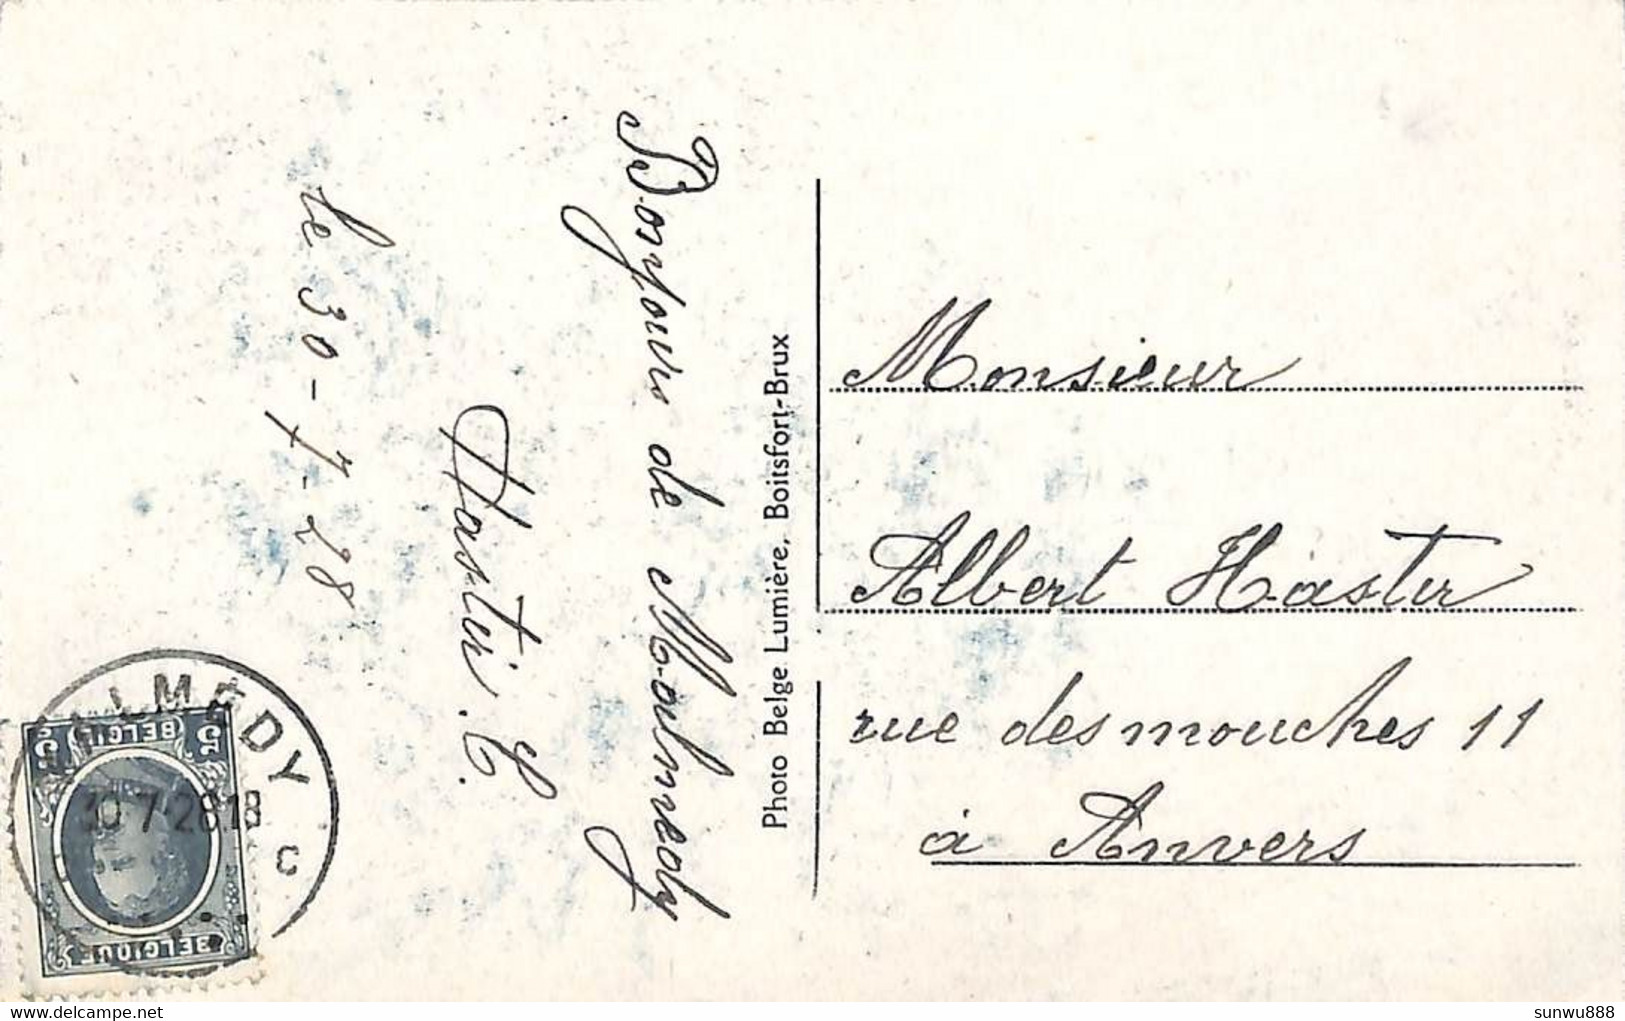 Bonjour de Malmedy
Hastir. C.
le 30-7-28
Photo Belge Lumière, Boitsfort-Brux
Monsieur
Albert Hastir
rue des mouches 11
à Anvers
MALMÉDY
30 7·28 18
C
BELGIË
5c 5c
BELGIQUE
sunwu888